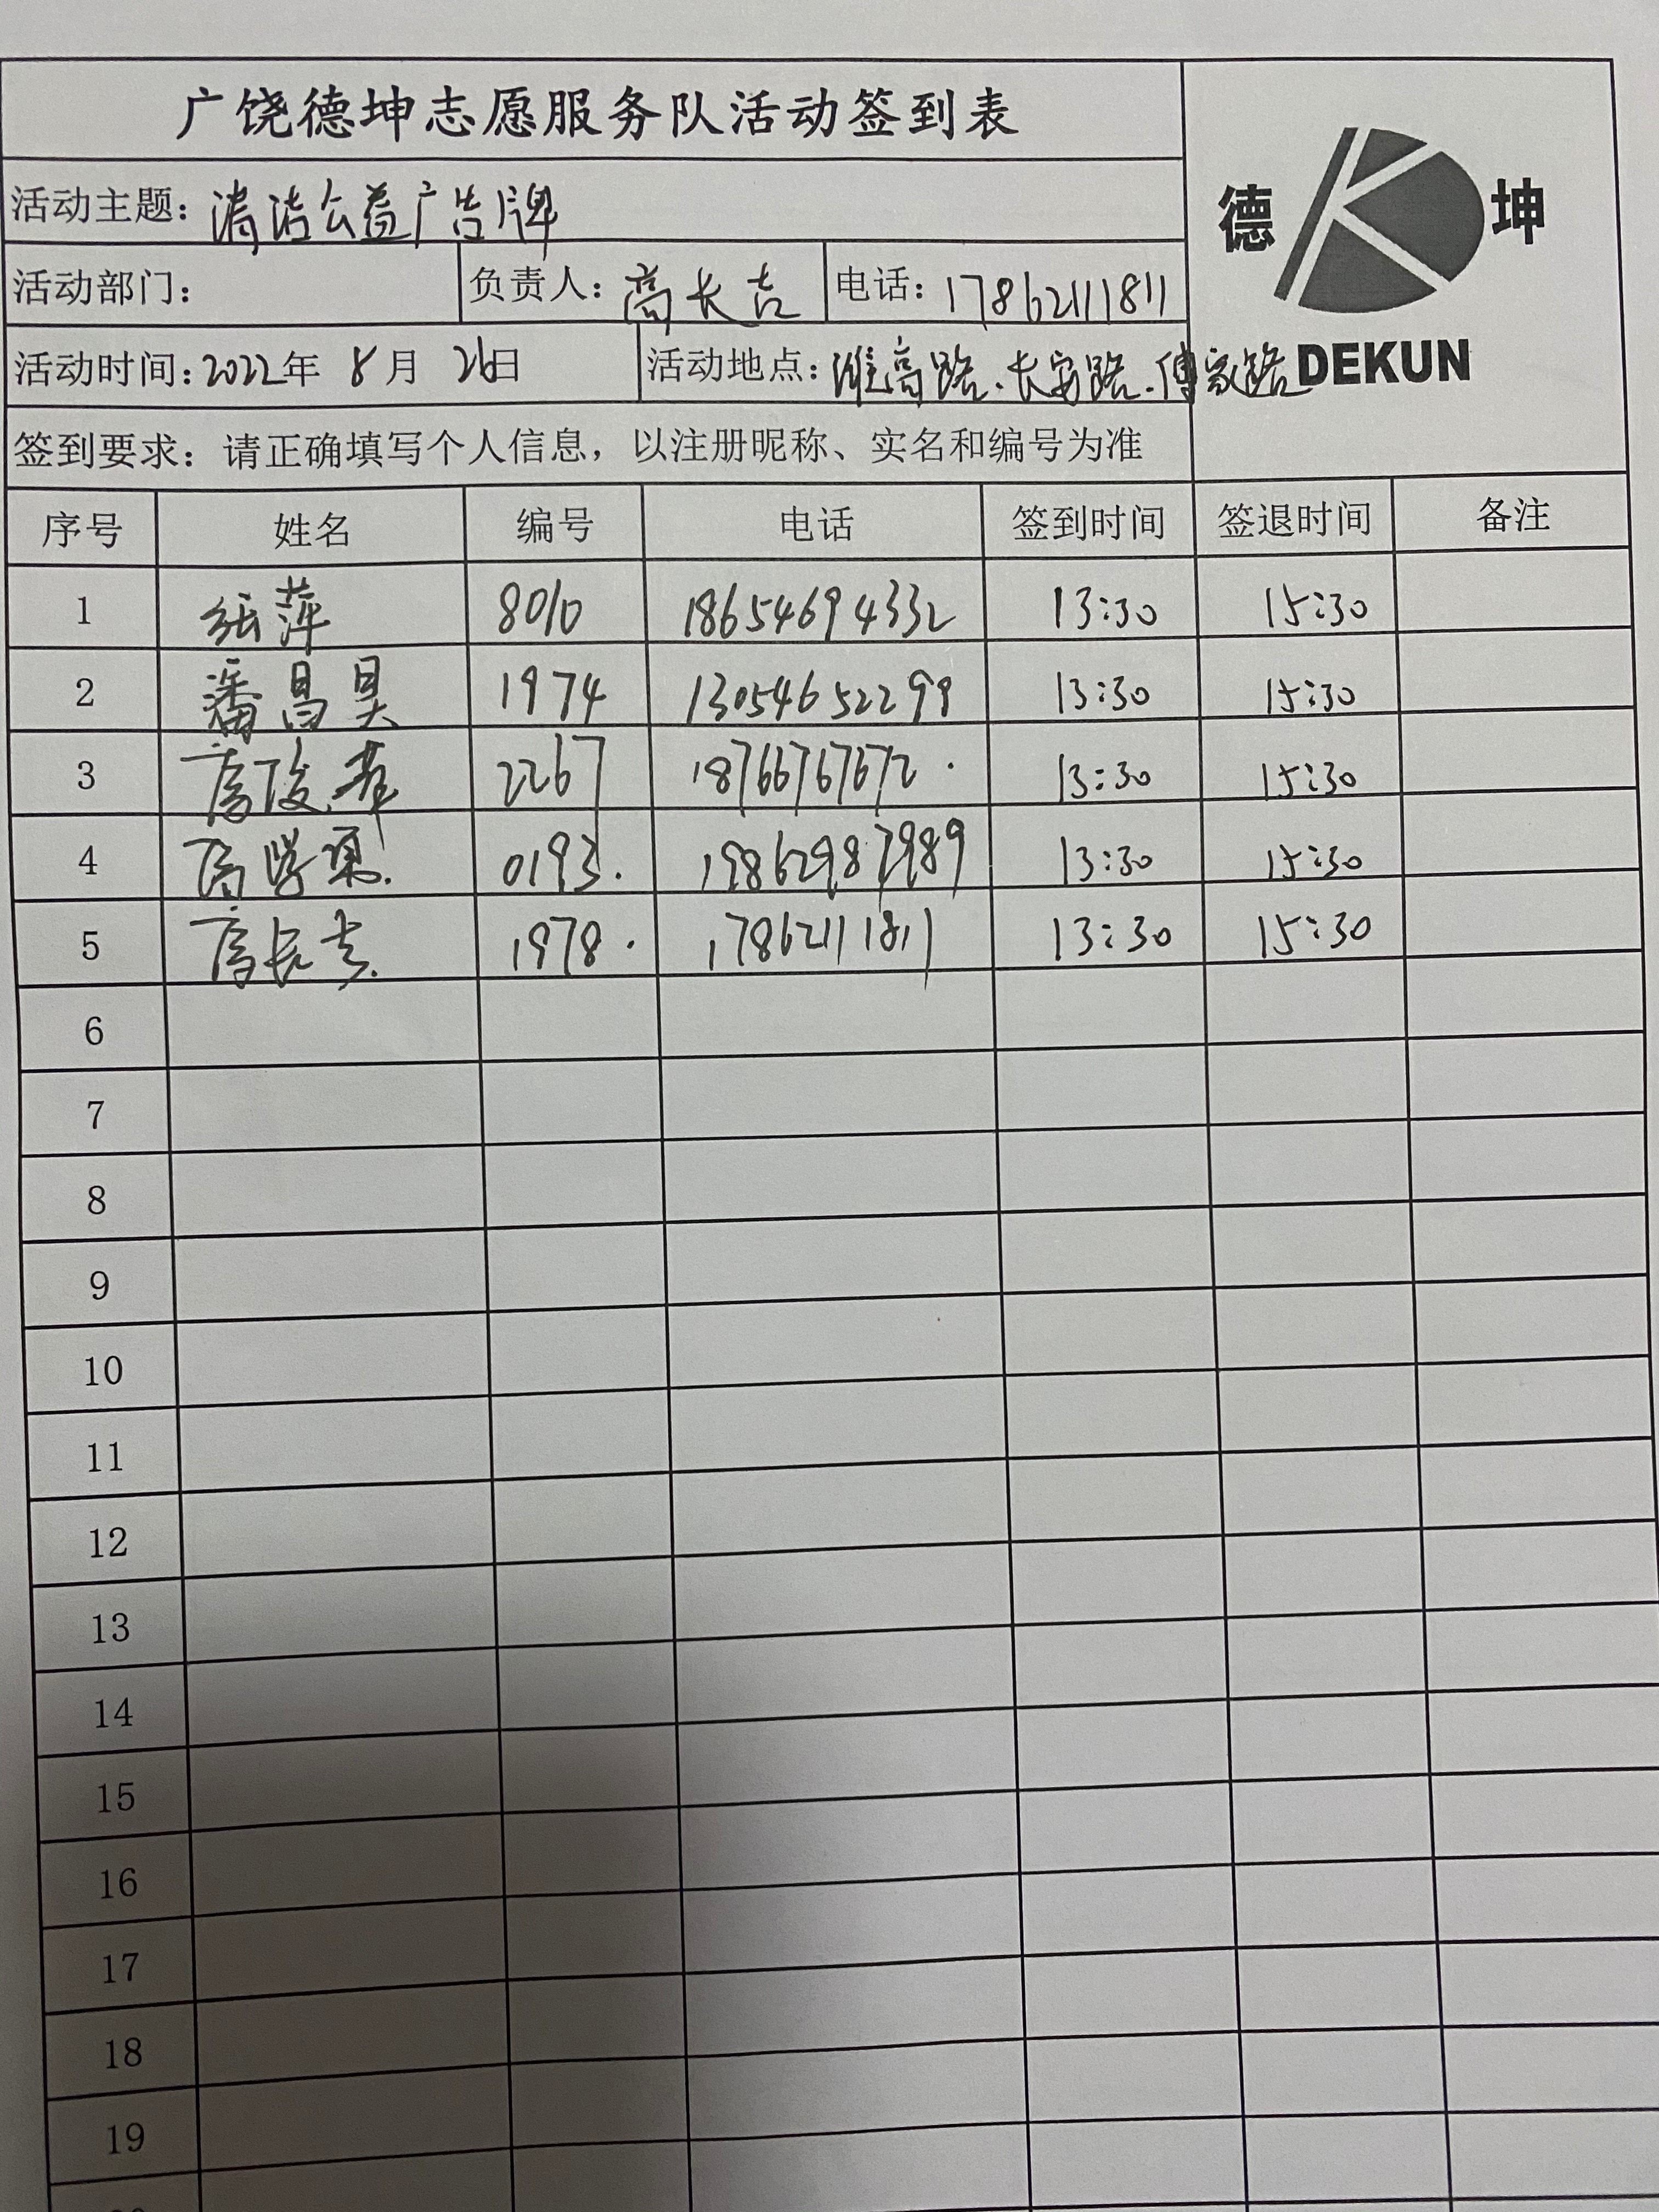 广饶德坤志愿服务队活动签到表
德 坤
活动主题：清洁公益广告牌
活动部门： 负责人：高长吉 电话：17862111811
活动时间：2022年 8月 26日 活动地点：潍高路、长安路、傅家路
DEKUN
签到要求：请正确填写个人信息，以注册昵称、实名和编号为准
序号 姓名 编号 电话 签到时间 签退时间 备注
1 萍 8010 18654694332 13:30 15:30
2 潘昌昊 1974 13054652299 13:30 15:30
3 高俊 2267 18766767672 13:30 15:30
4 高学 0193 19862987989 13:30 15:30
5 高长吉 1978 17862111811 13:30 15:30
6
7
8
9
10
11
12
13
14
15
16
17
18
19